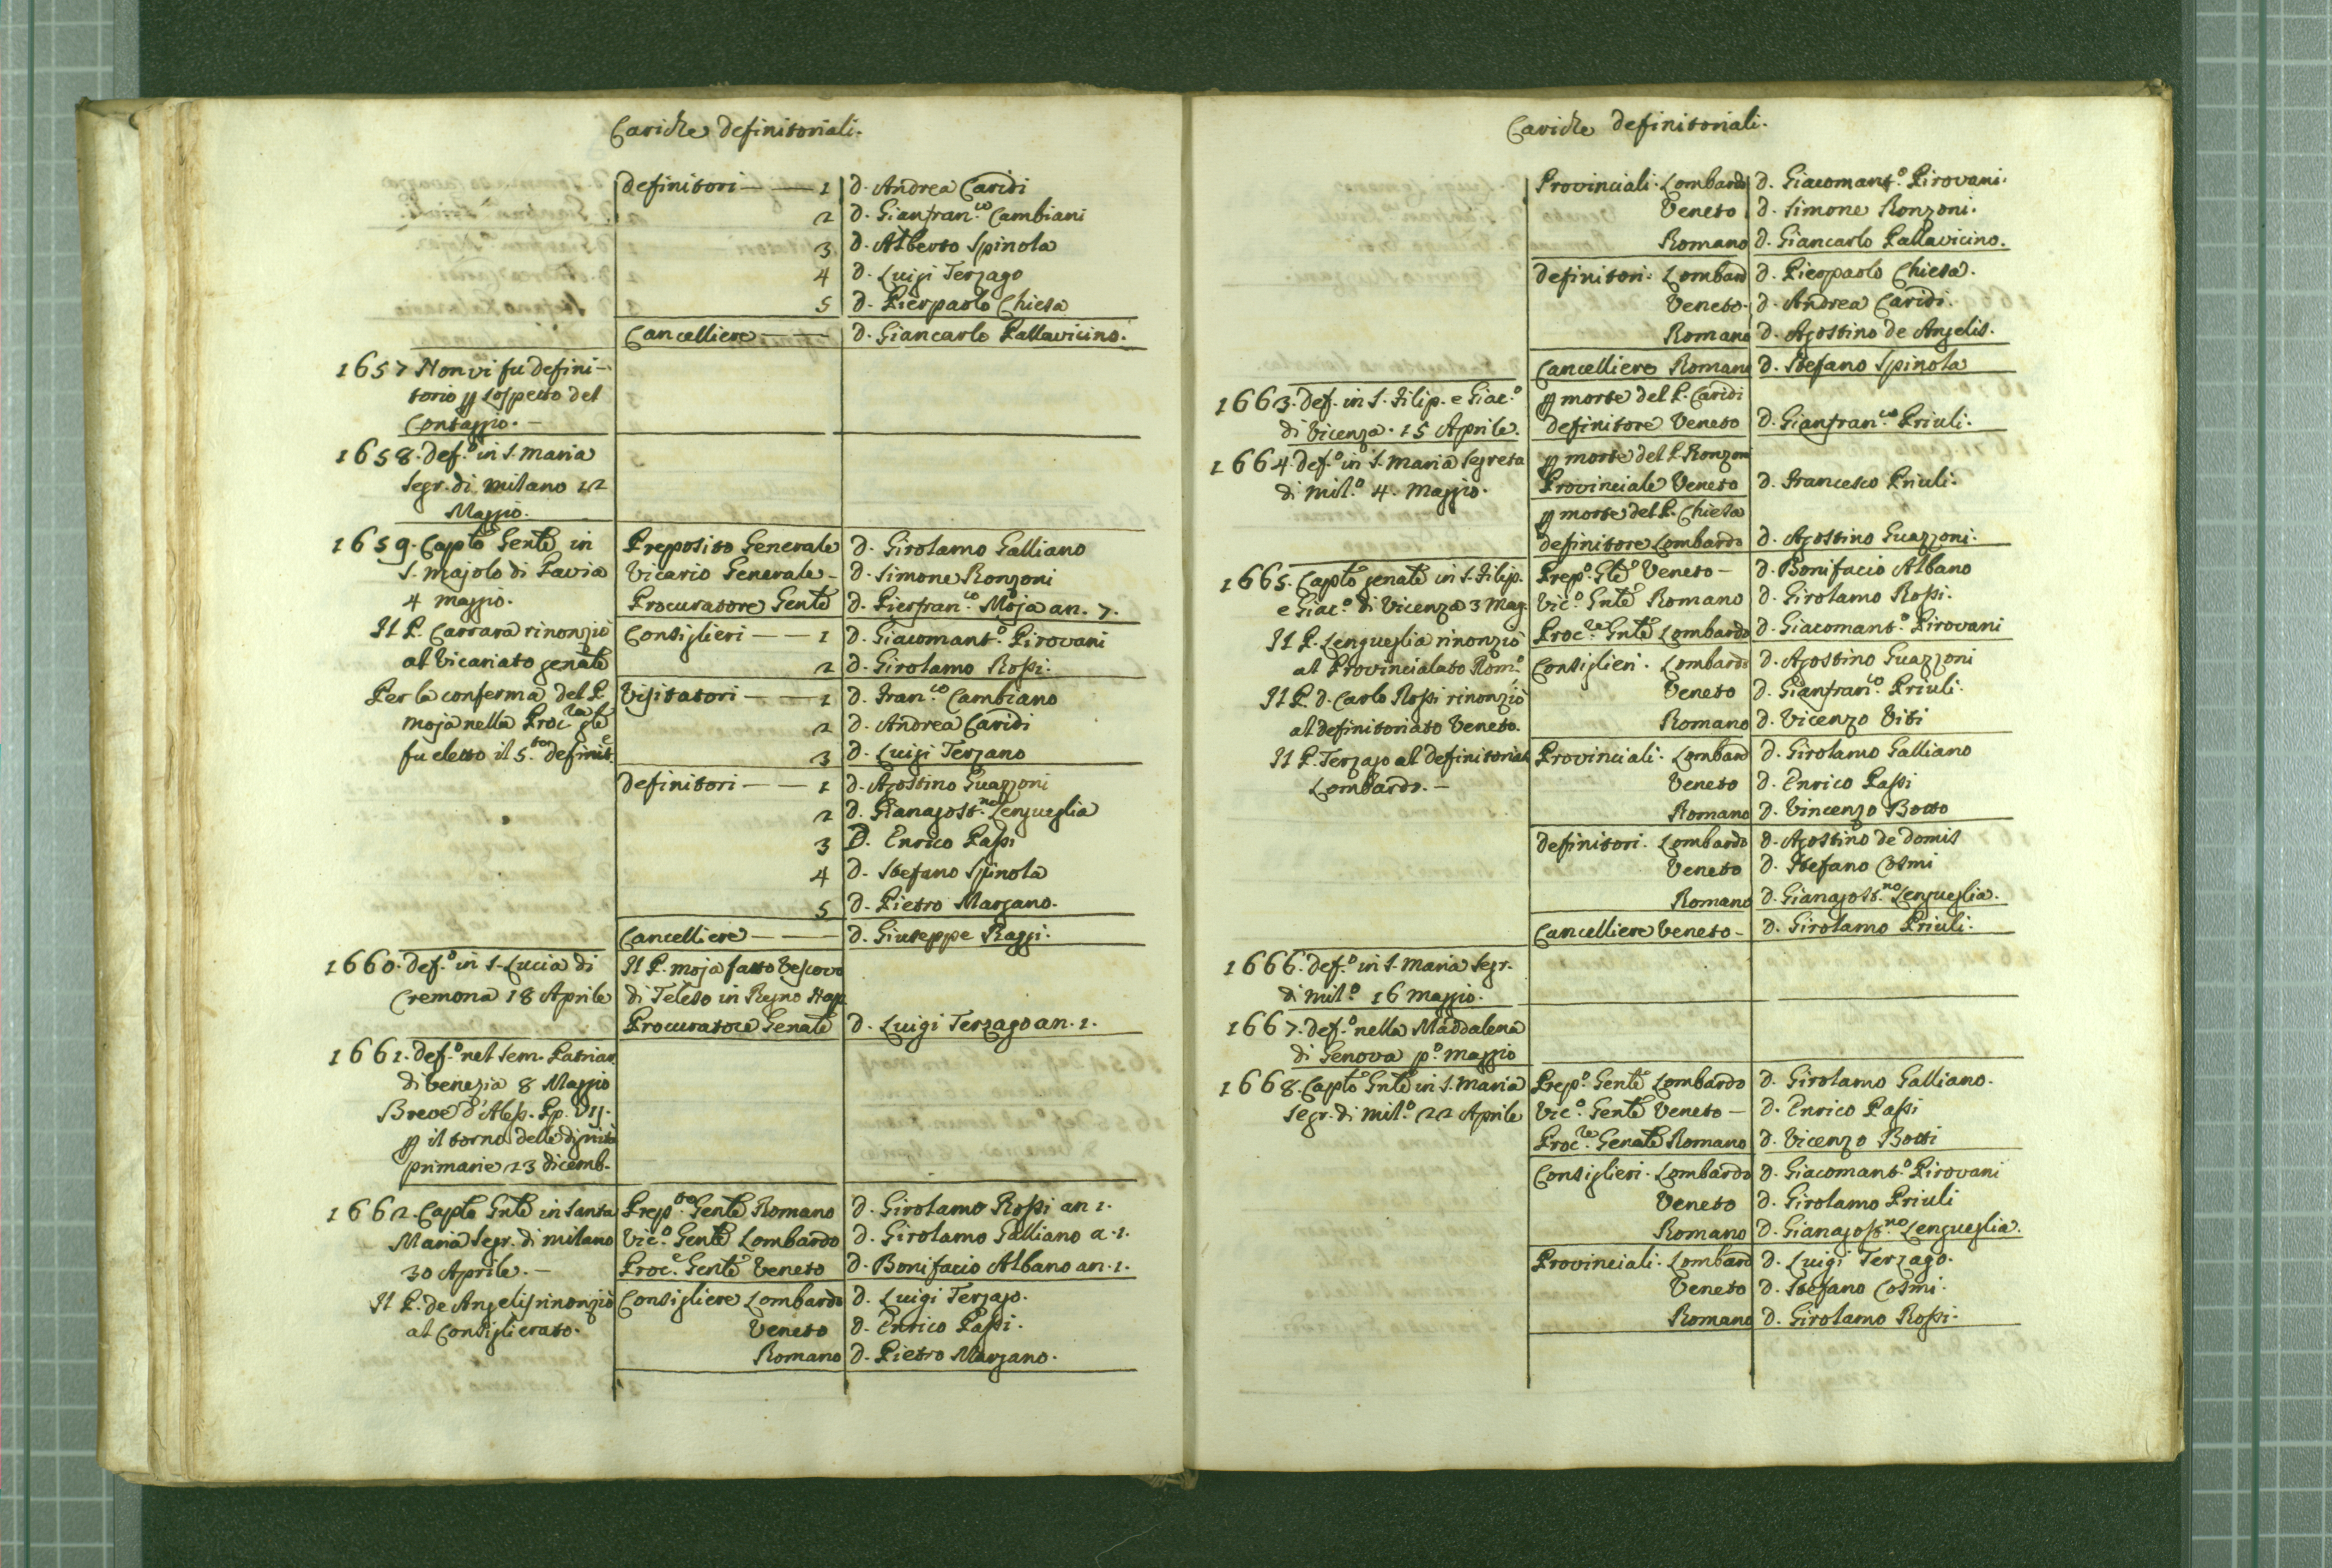 Cariche Definitoriali.
Definitori — — 1 D. Andrea Caridi
2 D. Gianfran.co Cambiani
3 D. Alberto Spinola
4 D. Luigi Terzago
5 D. Pierpaolo Chiesa
Cancelliere — — D. Giancarlo Pallavicino.
1657 Non vi fu defini-
torio p sospetto del
Contaggio. —
1658. Def.o in S. Maria
Segr. di Milano 12
Maggio.
1659. Caplo Genle in Preposito Generale D. Girolamo Galliano
S. Majolo di Pavia Vicario Generale - D. Simone Ronzoni
4 Maggio. Procuratore Genle D. Pierfran.co Moja an. 7.
Il P. Carrara rinonziò Consiglieri — — 1 D. Giacomant.o Pirovani
al Vicariato genale 2 D. Girolamo Rossi.
Per la conferma del P. Visitatori — — 1 D. Fran.co Cambiano
Moja nella Proc.ra gle 2 D. Andrea Caridi
fu eletto il 5.to Definit.e 3 D. Luigi Terzano
Definitori — — 1 D. Agostino Guazzoni
2 D. Gianagost.no Lengueglia
3 D. Enrico Passi
4 D. Stefano Spinola
5 D. Pietro Marzano.
Cancelliere — — D. Giuseppe Raggi.
1660. Def.o in S. Lucia di Il P. Moja fatto Vescovo
Cremona 18 Aprile di Teleso in Regno Nap
Procuratore Genale D. Luigi Terzago an. 1.
1661. Def.o nel Sem. Patriar
di Venezia 8 Maggio
Breve d'Aless. Pp. VII.
p il torno delle dignità
primarie 23 dicemb.
1662. Caplo Gnle in Santa Prep.to Genle Romano D. Girolamo Rossi an 1.
Maria Segr. di Milano Vic.o Genle Lombardo D. Girolamo Galliano a. 1.
30 Aprile. — Proc.e Genle Veneto D. Bonifacio Albano an. 1.
Il P. de Angelis rinonziò Consigliere Lombardo D. Luigi Terzago.
al Consiglierato. Veneto D. Enrico Passi.
Romano D. Pietro Marzano.
Cariche Definitoriali.
Provinciali. Lombardo D. Giacomant.o Pirovani.
Veneto D. Simone Ronzoni.
Romano D. Giancarlo Pallavicino.
Definitori. Lombard D. Pierpaolo Chiesa.
Veneto. D. Andrea Caridi.
Romano D. Agostino de Angelis.
Cancelliere Romano D. Stefano Spinola
1663. Def. in S. Filip. e Giac.o p morte del P. Caridi
di Vicenza. 15 Aprile. Definitore Veneto D. Gianfran.co Priuli.
1664. Def.o in S. Maria Segreta p morte del P. Ronzoni
di Mil.o 4. Maggio. Provinciale Veneto D. Francesco Priuli.
p morte del P. Chiesa
Definitore Lombardo D. Agostino Guazzoni.
1665. Caplo genale in S. Filip. Prep.o Gle Veneto - D. Bonifacio Albano
e Giac.o di Vicenza 3 Mag. Vic.o Gnle Romano D. Girolamo Rossi.
Il P. Lengueglia rinonziò Proc.re Gnle Lombardo D. Giacomant.o Pirovani
al Provincialato Rom.o Consiglieri. Lombardo D. Agostino Guazzoni
Il P. D. Carlo Rossi rinonziò Veneto D. Gianfran.co Priuli.
al definitoriato Veneto. Romano D. Vicenzo Viti
Il P. Terzago al definitoriat Provinciali. Lombard D. Girolamo Galliano
Lombardo. — Veneto D. Enrico Passi
Romano D. Vincenzo Botto
Definitori. Lombardo D. Agostino de Domis
Veneto D. Stefano Cosmi
Romano D. Gianagost.no Lengueglia.
Cancelliere Veneto - D. Girolamo Priuli.
1666. Def.o in S. Maria Segr.
di Mil.o 16 Maggio.
1667. Def.o nella Maddalena
di Genova p.o Maggio
1668. Caplo Gnle in S. Maria Prep.o Genle Lombardo D. Girolamo Galliano.
Segr. di Mil.o 22 Aprile Vic.o Genle Veneto - D. Enrico Passi
Proc.re Genale Romano D. Vicenzo Botti
Consiglieri. Lombardo D. Giacomant.o Pirovani
Veneto D. Girolamo Priuli
Romano D. Gianagos.no Lengueglia.
Provinciali. Lombard D. Luigi Terzago.
Veneto D. Stefano Cosmi.
Romano D. Girolamo Rossi.